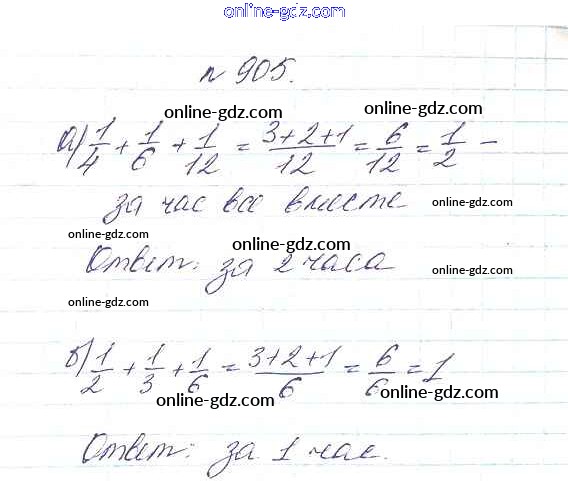 online-gdz.com
№ 905.
online-gdz.com online-gdz.com
а) 1/4 + 1/6 + 1/12 = 3+2+1/12 = 6/12 = 1/2 —
online-gdz.com
за час все вместе
online-gdz.com
Ответ: за 2 часа
online-gdz.com
online-gdz.com
б) 1/2 + 1/3 + 1/6 = 3+2+1/6 = 6/6 = 1
online-gdz.com
online-gdz.com
Ответ: за 1 час.
online-gdz.com